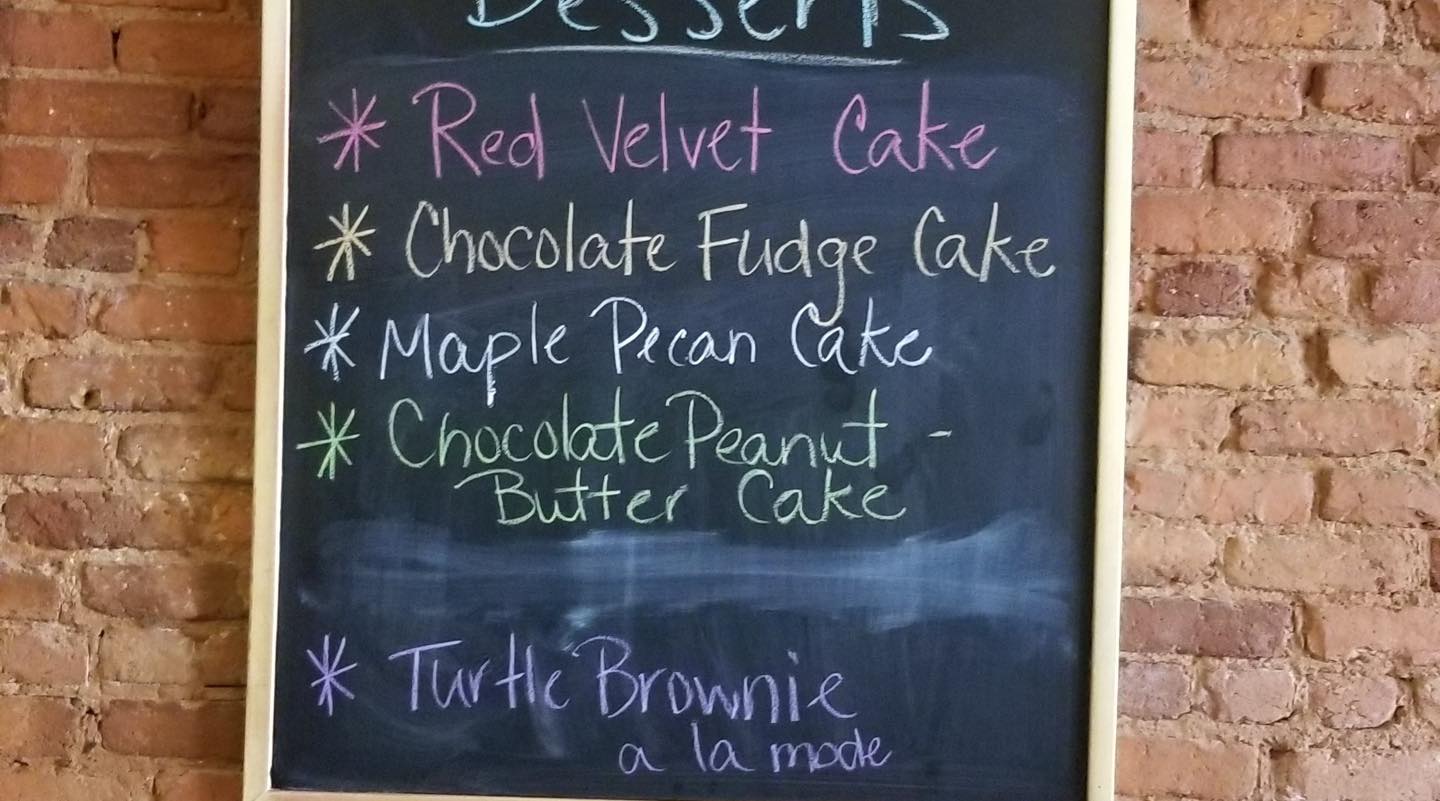 Desserts
* Red Velvet Cake
* Chocolate Fudge Cake
* Maple Pecan Cake
* Chocolate Peanut -
Butter Cake
* Turtle Brownie
a la mode